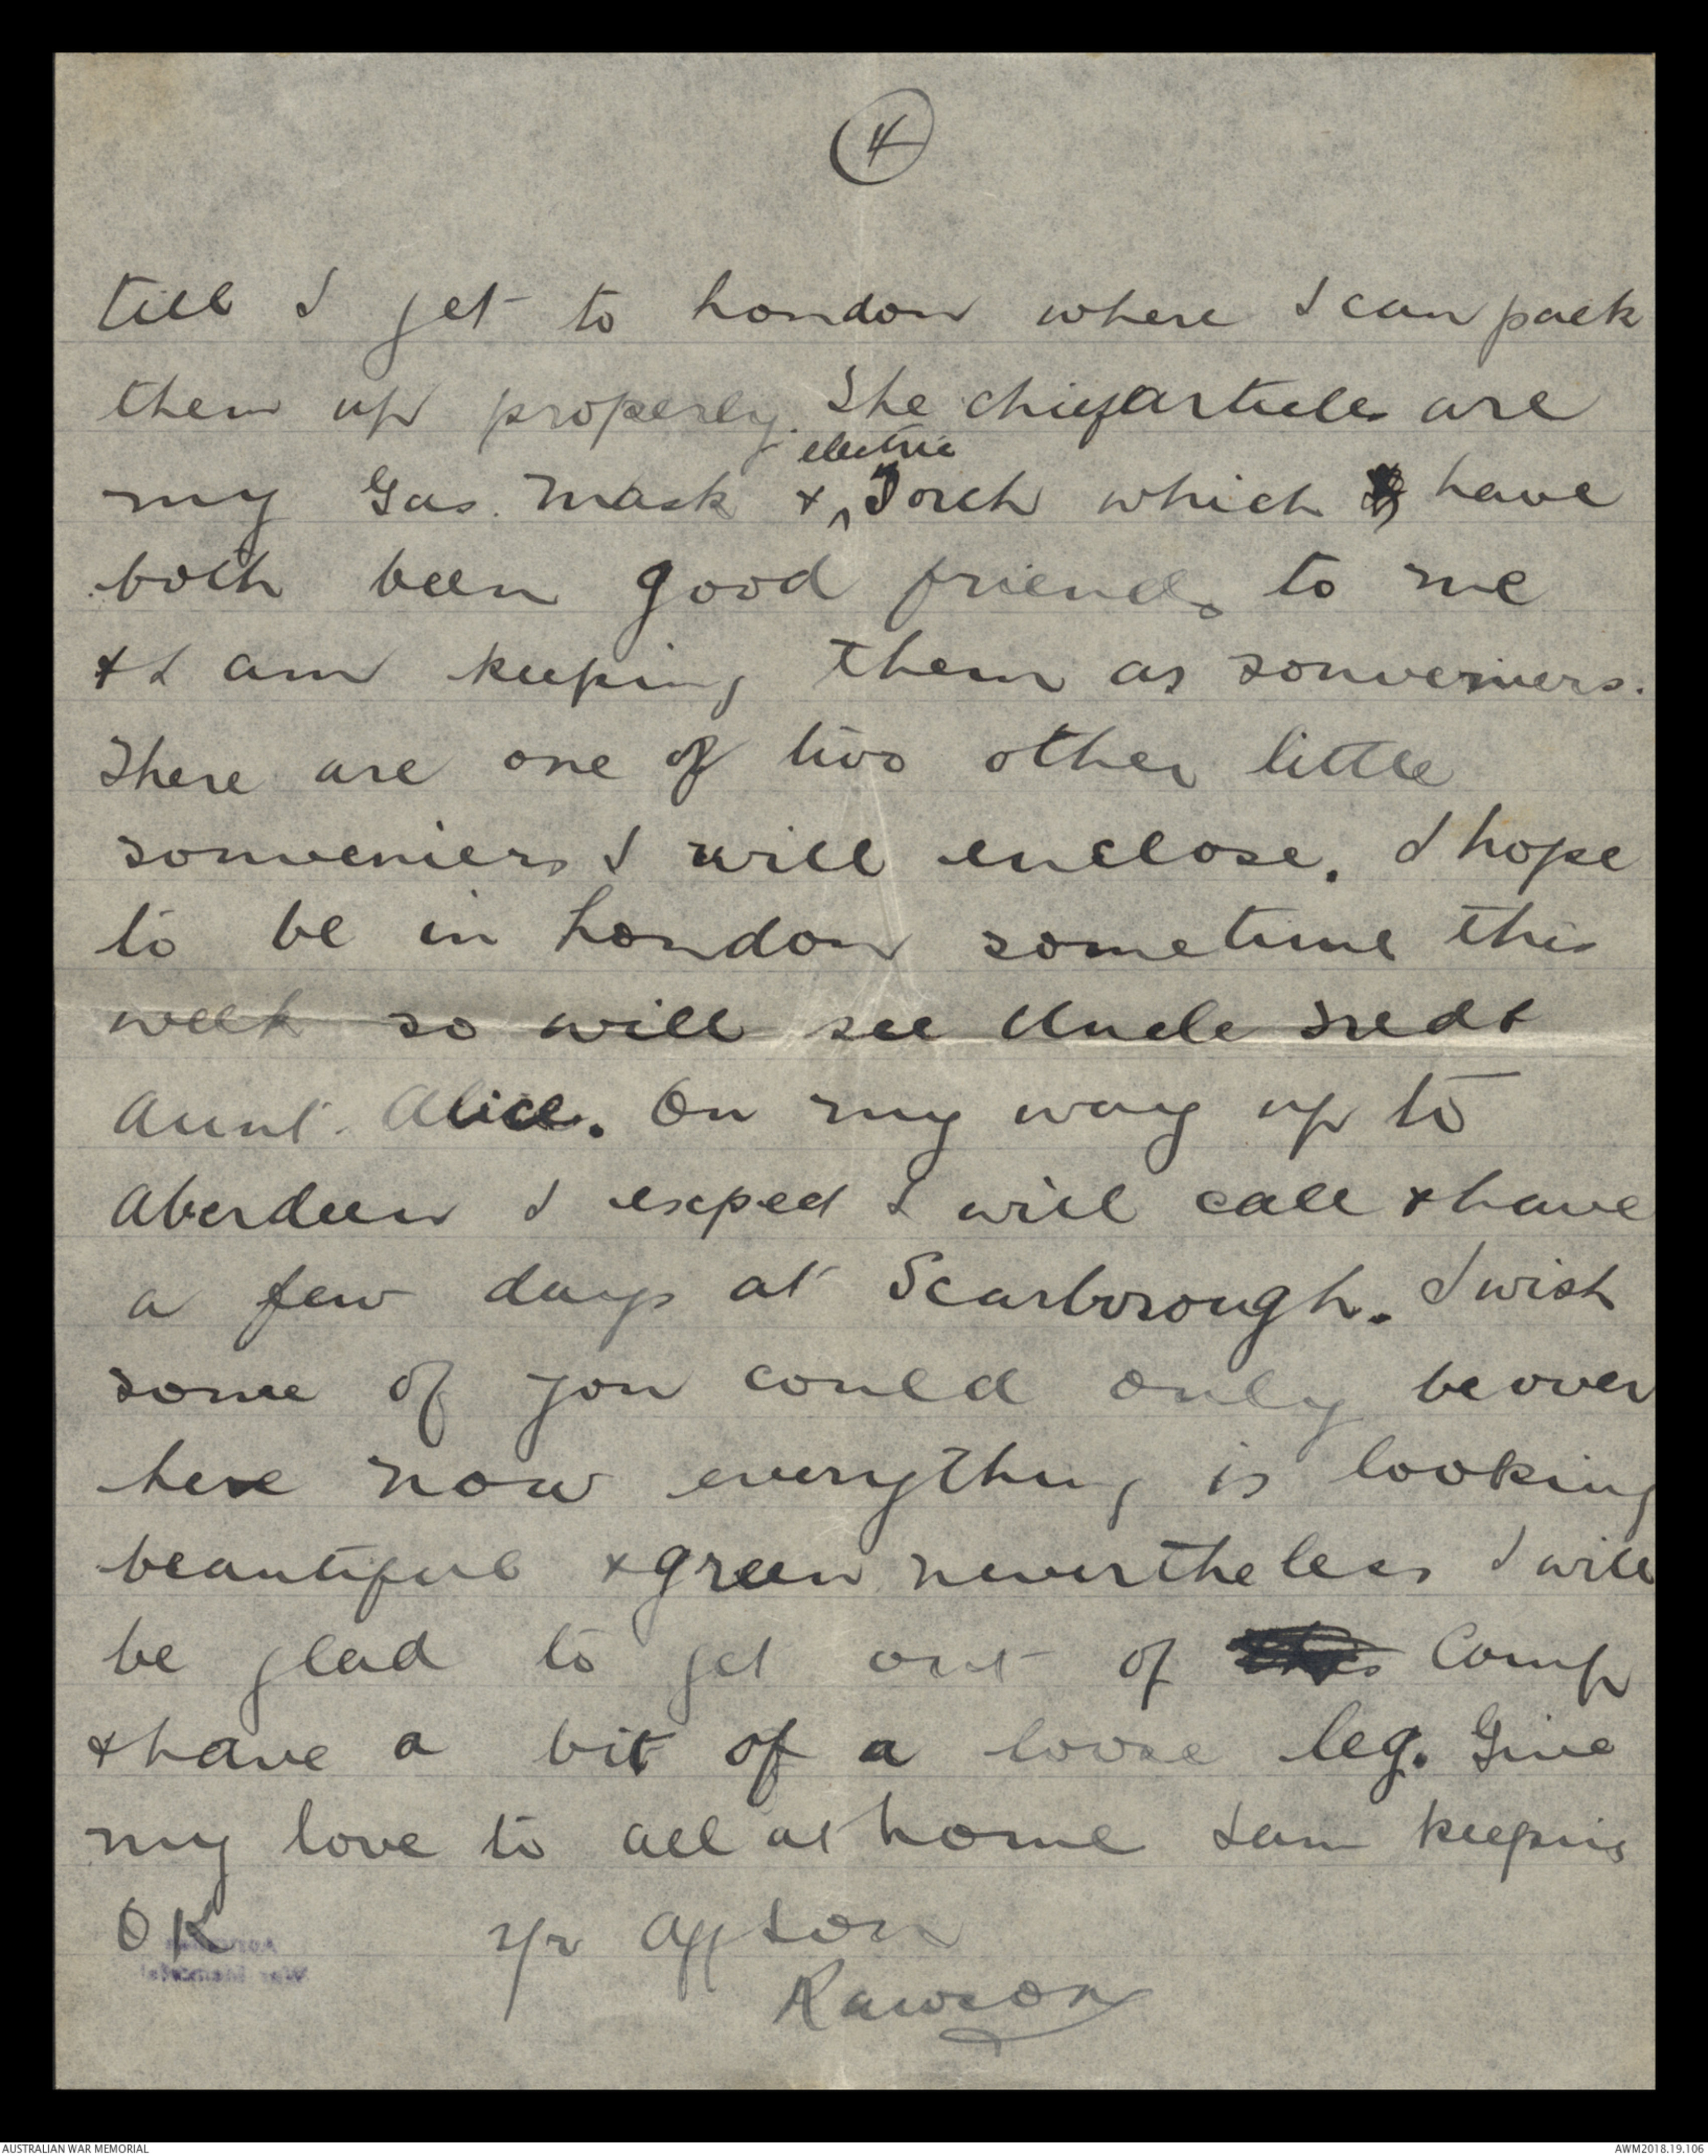 4
till I get to London where I can pack
them up properly. The chief articles are
electric
my Gas Mask & Torch which have
both been good friends to me
& I am keeping them as souveniers.
There are one of two other little
souveniers I will enclose. I hope
to be in London sometime this
week so will see Uncle Fred &
Aunt Alice. On my way up to
Aberdeen I expect I will call & have
a few days at Scarborough. I wish
some of you could only be over
here now everything is looking
beautiful & green nevertheless I will
be glad to get out of Camp
& have a bit of a loose leg. Give
my love to all at home I am keeping
OK yr aff son
Rawson
AUSTRALIAN WAR MEMORIAL
AWM2018.19.106